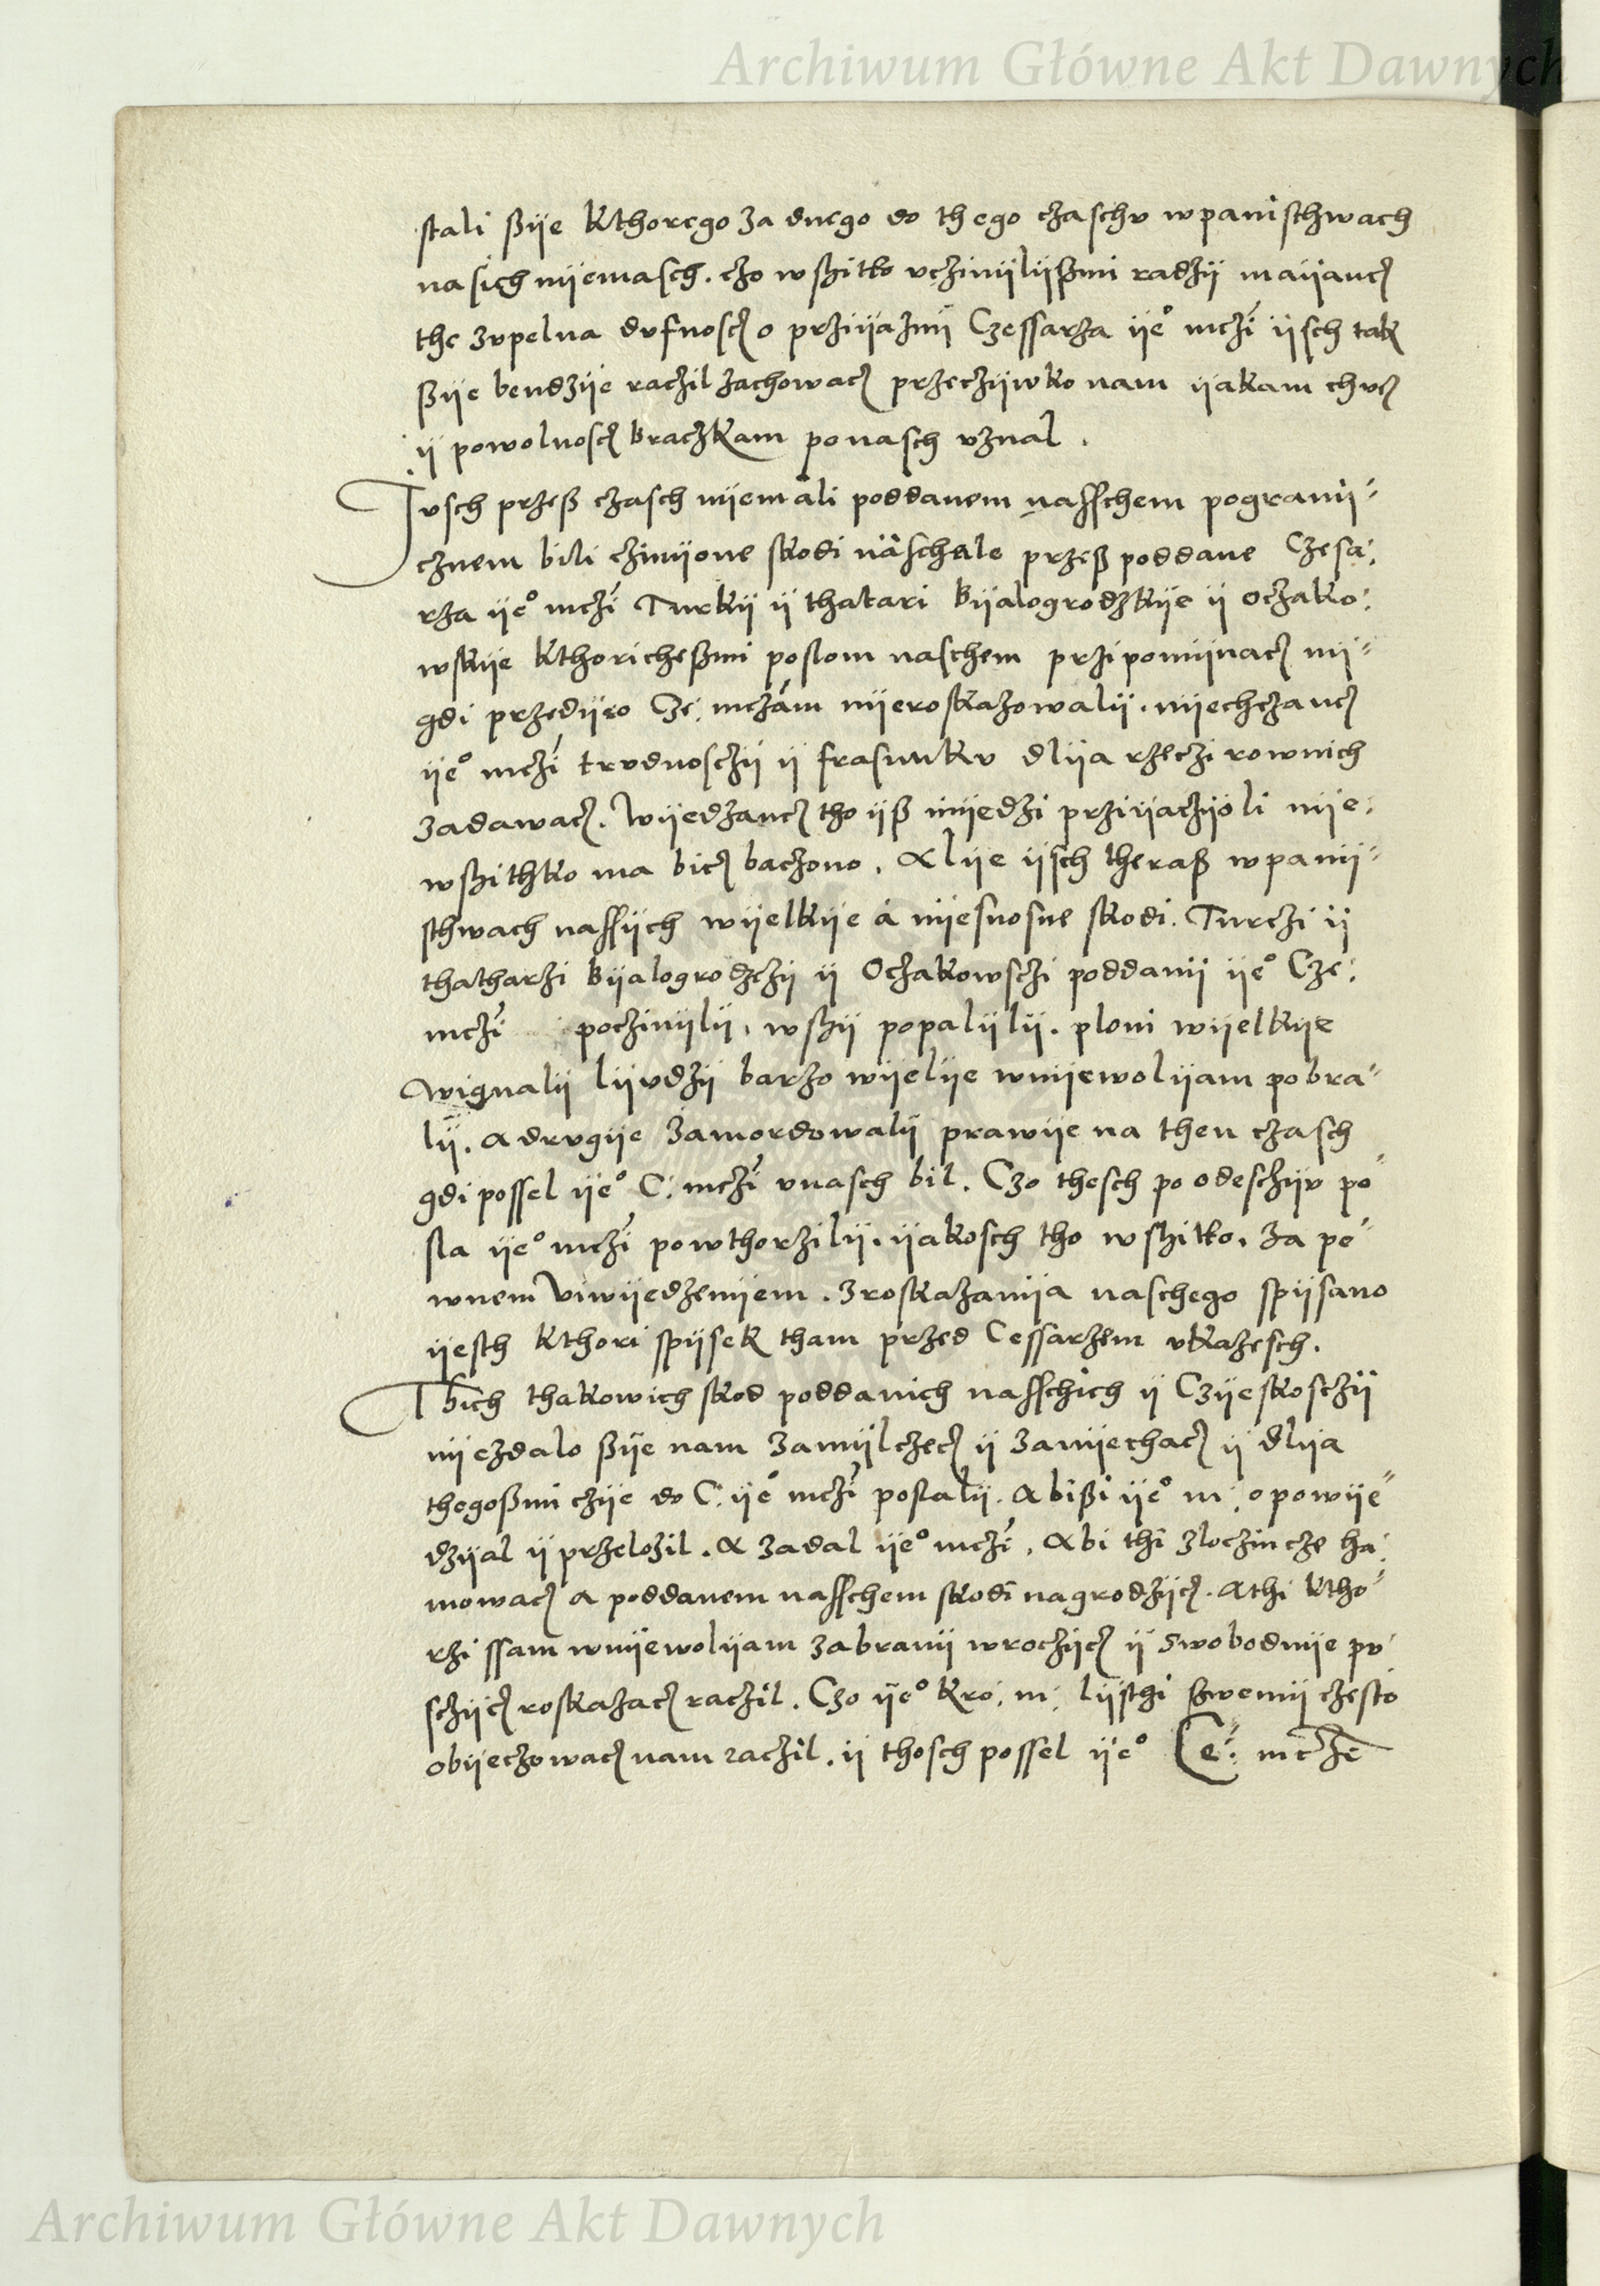 Archiwum Główne Akt Dawnych
stali ßÿe kthorego zadnego do thego czaschu w panÿsthwach
nasich nÿemasch. czo wszitko vczinÿlÿßmi radzÿ maÿancz
the zupelna dufnoscz o prziÿaznÿ Czessarza ÿeº mczi ÿsch tak
ßÿe bendzÿe raczil zachowacz przeczÿwko nam ÿakam chucz
ÿ powolnoscz braczkam po nasch vznal.
Jusch przeß czasch nÿemali poddanem naschem pogranÿ=
cznem bili czinÿone skodi naschale przeß poddane Czesa:
rza ÿeº mczi Turkÿ ÿ thatari bÿalogrodzkÿe ÿ Oczako:
wskÿe kthoricheßmi poslom naschem przipomÿnacz nÿ=
gdi przed ÿeo Cze: mczam nÿeroskazowalÿ. nÿechczancz
ÿeº mczi trudnosczÿ ÿ frasunku dlÿa rzeczi rownich
zadawacz. Wÿedzancz tho ÿß mÿedzi prziÿaczÿoli nÿe:
wszithko ma bicz baczono. Alÿe ÿsch theraß w panÿ=
sthwach nassÿch wÿelkÿe a nÿesnosne skodi. Turczi ÿ
thatharzi bÿalogrodzczÿ ÿ Oczakowsczi poddanÿ ÿeº Cze:
mczi poczinÿlÿ, wszÿ popalÿlÿ. ploni wÿelkÿe
wignalÿ lÿudzÿ barzo wÿelÿe wnÿewolÿam pobra=
lÿ. a drugÿe zamordowalÿ prawÿe na then czasch
gdi possel ÿeº C: mczi v nasch bil. Czo thesch po odesczÿu po=
sla ÿeº mczi powthorzilÿ. ÿakosch tho wszitko. za pe=
wnem viwÿedzenÿem. z roskazanÿa naschego spÿsano
ÿesth kthori spÿsek tham przed Cessarzem vkazesch.
Thich thakowich skod poddanich nasschich ÿ Czÿeskosczÿ
nÿezdalo ßÿe nam zamÿlczecz ÿ zanÿechacz ÿ dlÿa
thegoßmi czÿe do C: ÿeº mczi poslalÿ. Abißi ÿeº m: opowÿe=
dzÿal ÿ przelozil. A zadal ÿeº mczi, Abi thi zloczincze ha:
mowacz a poddanem nasschem skodi nagrodzÿcz. Athi ktho=
rzi ssam wnÿewolÿam zabranÿ wroczÿcz ÿ swobodnÿe pu=
sczÿcz roskazacz raczil. Czo ÿeº kro: m: lÿsthi ßwemÿ czesto
obÿeczowacz nam raczil. ÿ thosch possel ÿeº Ce: mczi
Archiwum Główne Akt Dawnych